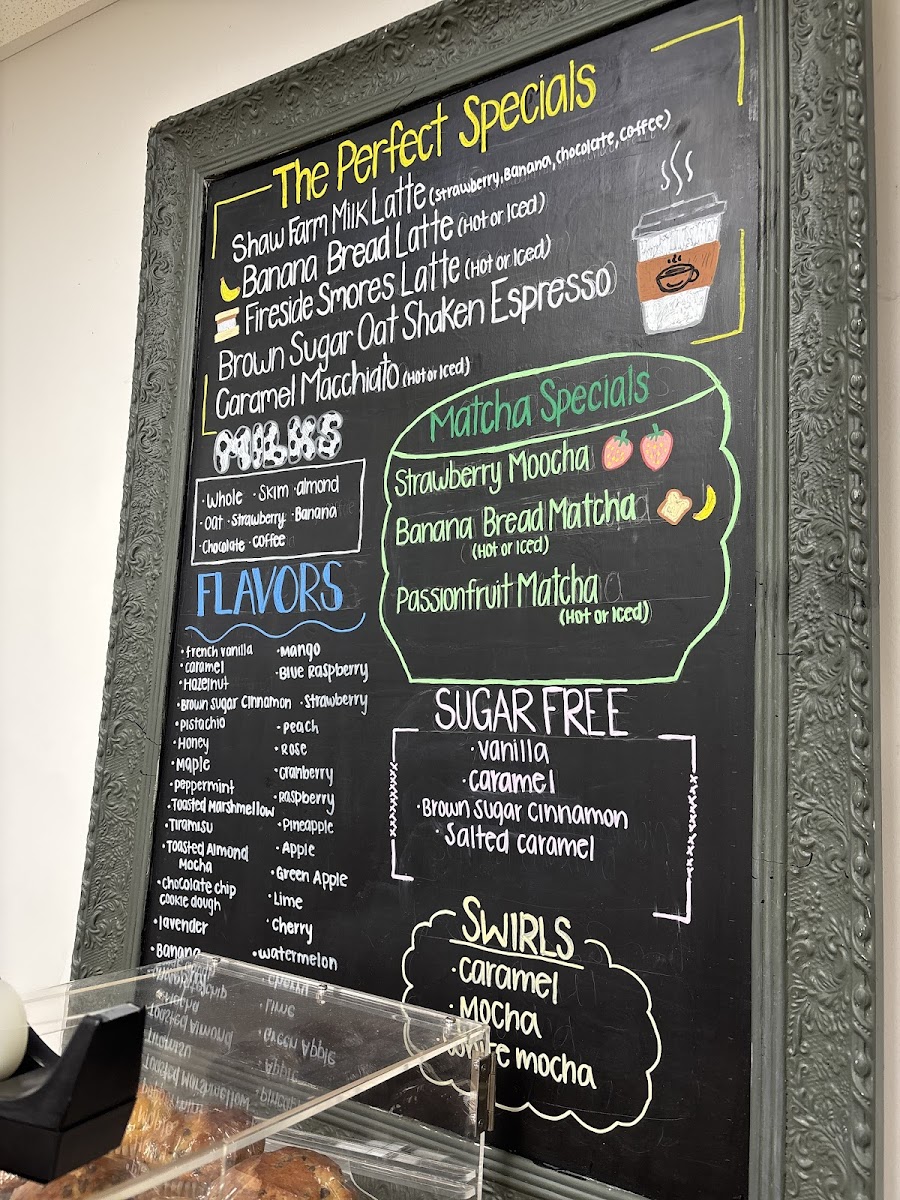 The Perfect Specials
Shaw Farm Milk Latte (strawberry, Banana, chocolate, coffee)
Banana Bread Latte (Hot or Iced)
Fireside Smores Latte (Hot or Iced)
Brown Sugar Oat Shaken Espresso
Caramel Macchiato (Hot or Iced)
MILKS
·Whole ·Skim ·almond
·Oat ·Strawberry ·Banana
·Chocolate ·coffee
Matcha Specials
Strawberry Moocha
Banana Bread Matcha
(Hot or Iced)
Passionfruit Matcha
(Hot or Iced)
FLAVORS
·french vanilla
·caramel
·Hazelnut
·Brown sugar cinnamon
·Pistachio
·Honey
·Maple
·peppermint
·Toasted Marshmellow
·Tiramisu
·Toasted Almond
Mocha
·chocolate chip
cookie dough
·lavender
·Banana
·Mango
·Blue Raspberry
·Strawberry
·Peach
·Rose
·cranberry
·Raspberry
·Pineapple
·Apple
·Green Apple
·Lime
·Cherry
·watermelon
SUGAR FREE
·vanilla
·caramel
·Brown sugar cinnamon
·Salted caramel
SWIRLS
·caramel
·Mocha
mocha